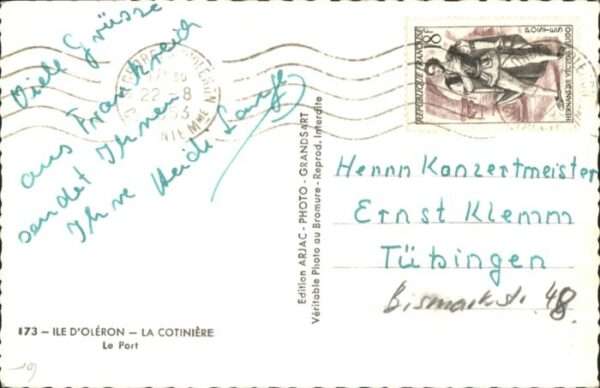 Viele Grüsse
aus Frankreich
sendet Ihnen
Ihre Heidi
ST GEORGES D'OLERON
22-8
53
Edition ARJAC - PHOTO - GRANDSART
Véritable Photo au Bromure - Reprod. Interdite
8F
POSTES
REPUBLIQUE FRANÇAISE
HERNANI DE VICTOR HUGO
Herrn Konzertmeister
Ernst Klemm
Tübingen
Bismarckstr. 48.
173 – ILE D'OLÉRON – LA COTINIÈRE
Le Port